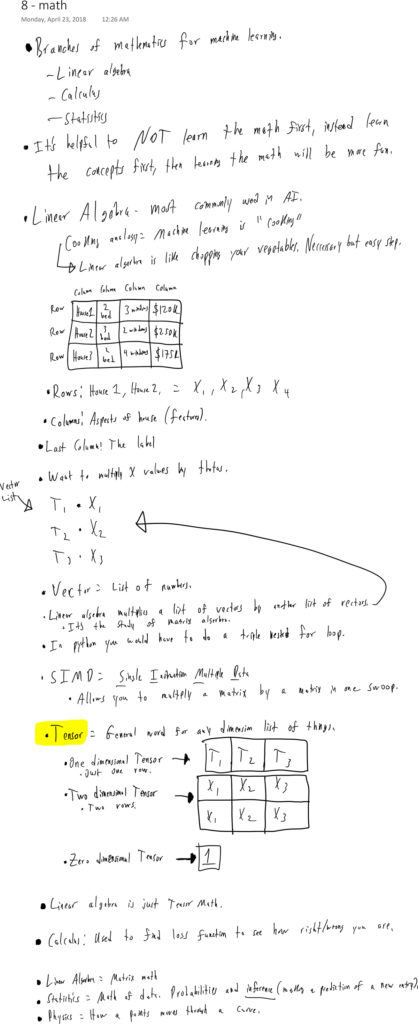 8 - math
Monday, April 23, 2018 12:26 AM
• Branches of mathematics for machine learning.
- Linear algebra
- Calculus
- Statistics
• It's helpful to NOT learn the math first, instead learn
the concepts first, then learning the math will be more fun.
• Linear Algebra - most commonly used in AI.
Cooking analogy: Machine learning is "cooking"
Linear algebra is like chopping your vegetables. Necessary but easy step.
Column Column Column Column
Row House1 2 bed 3 windows $120K
Row House2 3 bed 2 windows $250K
Row House3 2 bed 4 windows $175K
• Rows: House 1, House 2, = X1, X2, X3 X4
• Columns: Aspects of house (features).
• Last Column: The label
• Want to multiply X values by thetas.
Vector List
T1 • X1
T2 • X2
T3 • X3
• Vector = List of numbers.
• Linear algebra multiplies a list of vectors by another list of vectors.
• It's the study of matrix algebra.
• In python you would have to do a triple nested for loop.
• SIMD = Single Instruction Multiple Data
• Allows you to multiply a matrix by a matrix in one swoop.
• Tensor = General word for any dimension list of things.
• One dimensional Tensor → T1 T2 T3
• Just one row.
• Two dimensional Tensor → X1 X2 X3
• Two rows.
X1 X2 X3
• Zero dimensional Tensor → 1
• Linear algebra is just Tensor Math.
• Calculus: Used to find loss function to see how right/wrong you are.
• Linear Algebra = Matrix math
• Statistics = Math of data. Probabilities and inference (making a prediction of a new entry?)
• Physics = How a points moves through a curve.